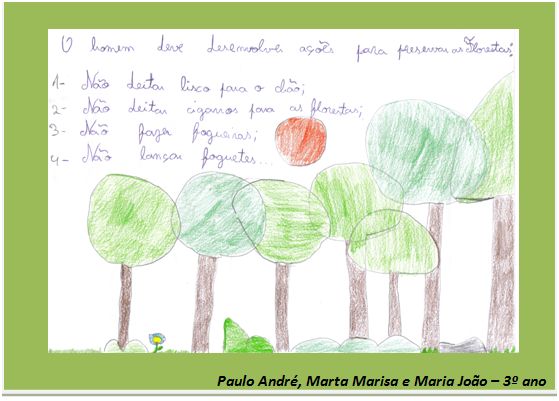 O homem deve desenvolver ações para preservar as Florestas:
1- Não deitar lixo para o chão;
2- Não deitar cigarros para as florestas;
3- Não fazer fogueiras;
4- Não lançar foguetes...
Paulo André, Marta Marisa e Maria João – 3º ano